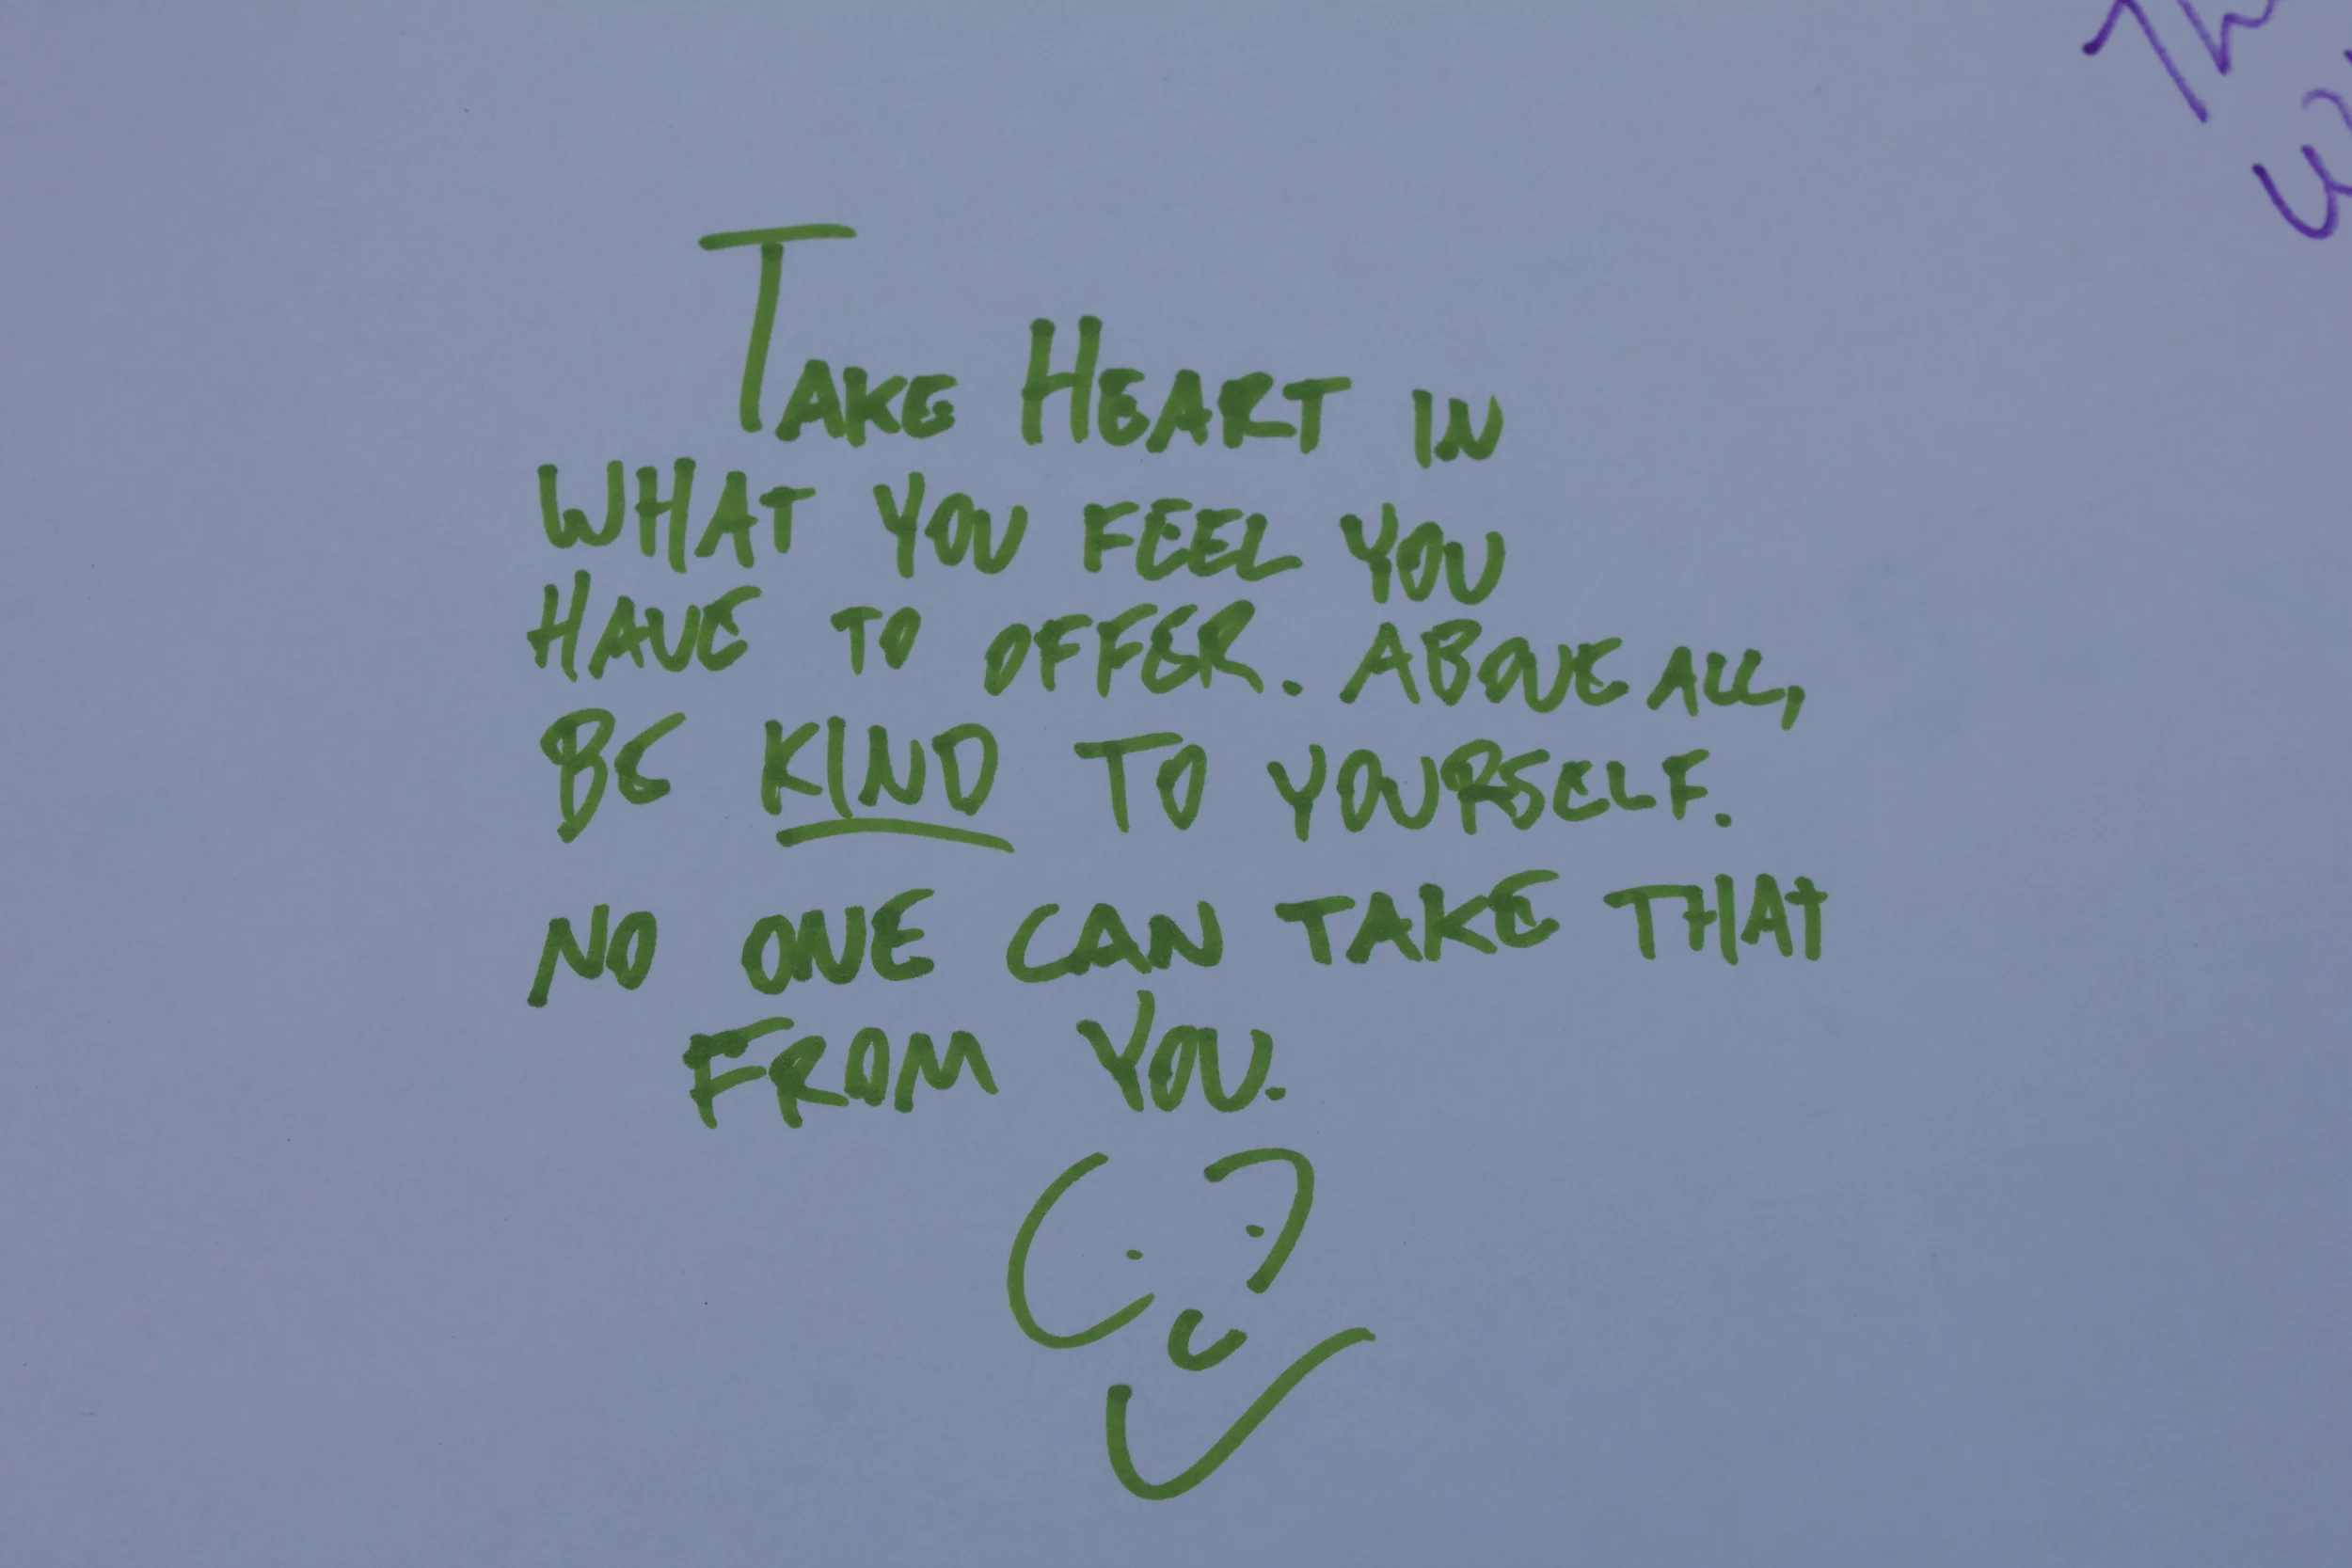 Take Heart in
what you feel you
have to offer. Above all,
be kind to yourself.
No one can take that
from you.